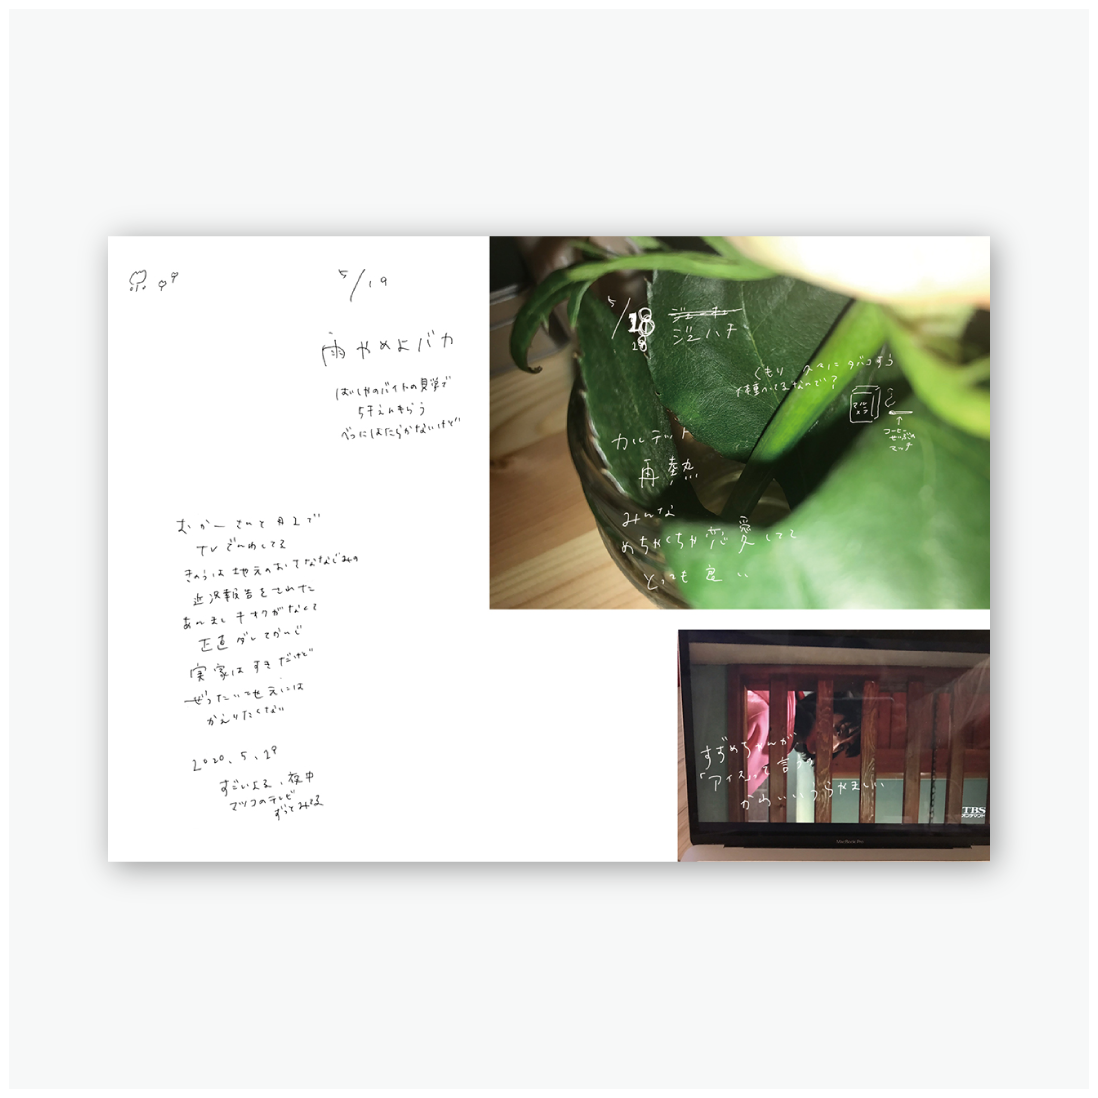 5/19
雨やめよバカ
5千えんもらう
べつにはたらかないけど
むかーさんと
TVでんわしてる
きのうは地元のおさななじみの
近況報告をされた
あんましキオクがなくて
正直ダレてかんじ
実家はすきだけど
ぜったい地元には
かえりたくない
2020、5、19
すごいよる、夜中
マツコのテレビ
ずっとみてる
5/18
くもり 久々にタバコすう
コーヒー
マッチ
カルテット
再熱
みんな
めちゃくちゃ恋愛してて
とっても良い
すずめちゃんが
「アイス」って言うの
かわいいうらやましい
TBS
オンデマンド
MacBook Pro